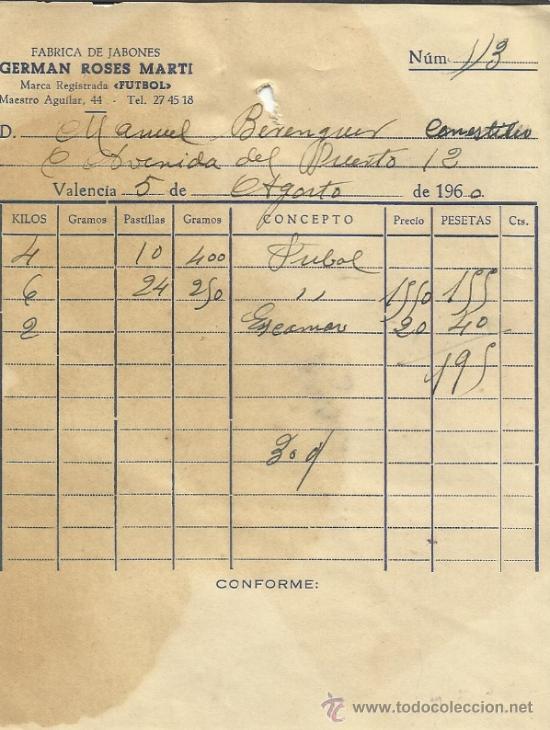 FABRICA DE JABONES
GERMAN ROSES MARTI
Marca Registrada «FUTBOL»
Maestro Aguilar, 44 - Tel. 27 45 18
Núm. 113
D. Manuel Berenguer Comestibles
Avenida del Puerto 12
Valencia 5 de Agosto de 1960.
KILOS Gramos Pastillas Gramos CONCEPTO Precio PESETAS Cts.
4 10 400 Futbol
6 24 250 " 1550 155
2 Escamas 20 40
195
30 d/
CONFORME:
todocoleccion
© www.todocoleccion.net